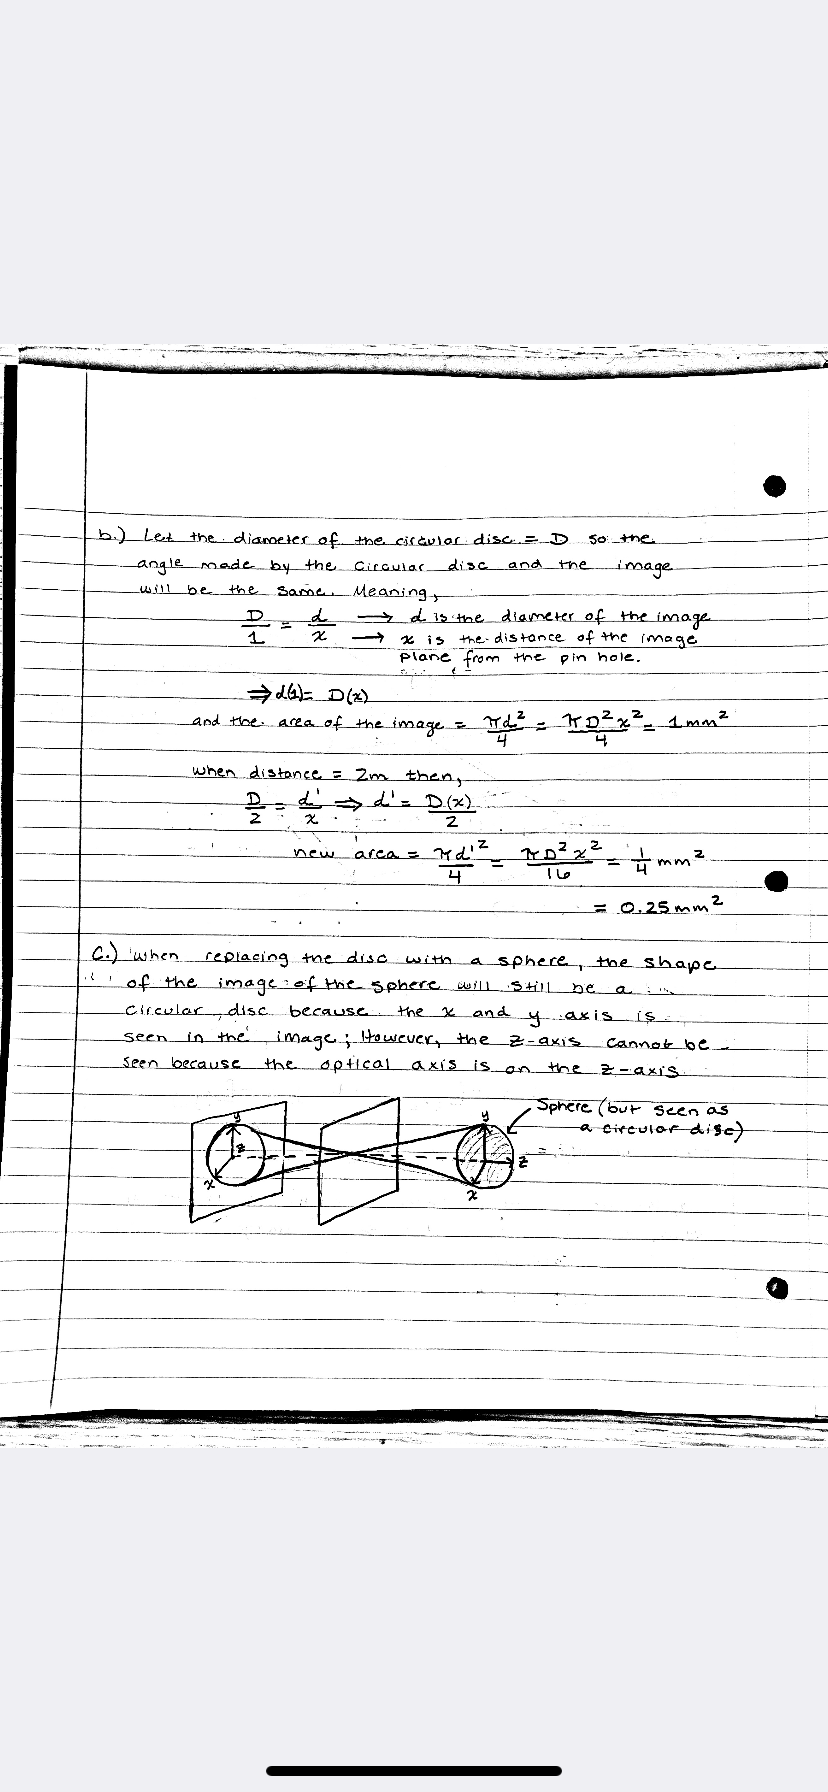 b.) Let the diameter of the circular disc = D so the
angle made by the circular disc and the image
will be the same. Meaning,
D/1 = d/x → d is the diameter of the image
→ x is the distance of the image
plane from the pin hole.
⇒ d(1) = D(x)
and the area of the image = πd²/4 = πD²x²/4 = 1mm²
when distance = 2m then,
D/2 = d'/x ⇒ d' = D(x)/2
new area = πd'²/4 = πD²x²/16 = 1/4 mm²
= 0.25mm²
C.) when replacing the disc with a sphere, the shape
of the image of the sphere will still be a
circular disc because the x and y axis is
seen in the image; However, the z-axis cannot be
seen because the optical axis is on the z-axis
Sphere (but seen as
a circular disc)
y
z
x
y
z
x